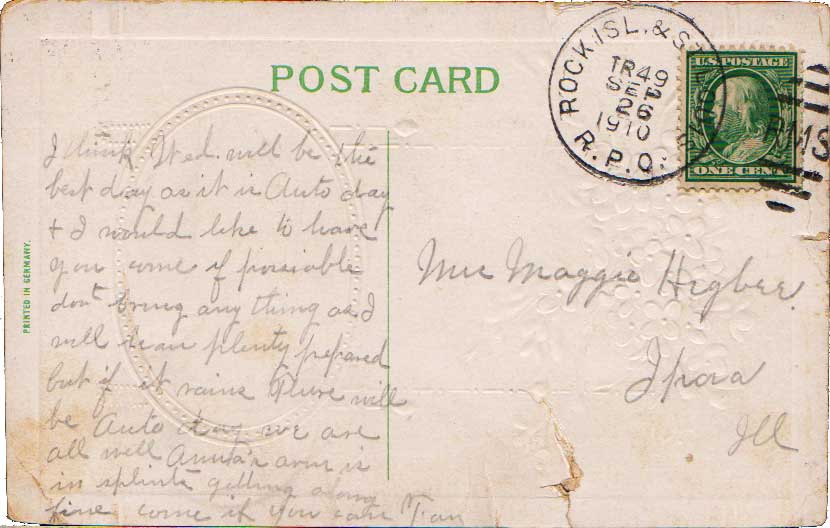 POST CARD
ROCK ISL. & ST.
TR 49
SEP
26
1910
R.P.O.
RMS
U.S. POSTAGE
ONE CENT
PRINTED IN GERMANY.
I think Wed. will be the
best day as it is Auto day
+ I would like to have
you come if possiable
don't bring any thing as I
will have plenty prepared
but if it rains Thurs will
be Auto day we are
all well arm is
in splints getting along
fine come if you can
Mrs Maggie Higbee.
Ill